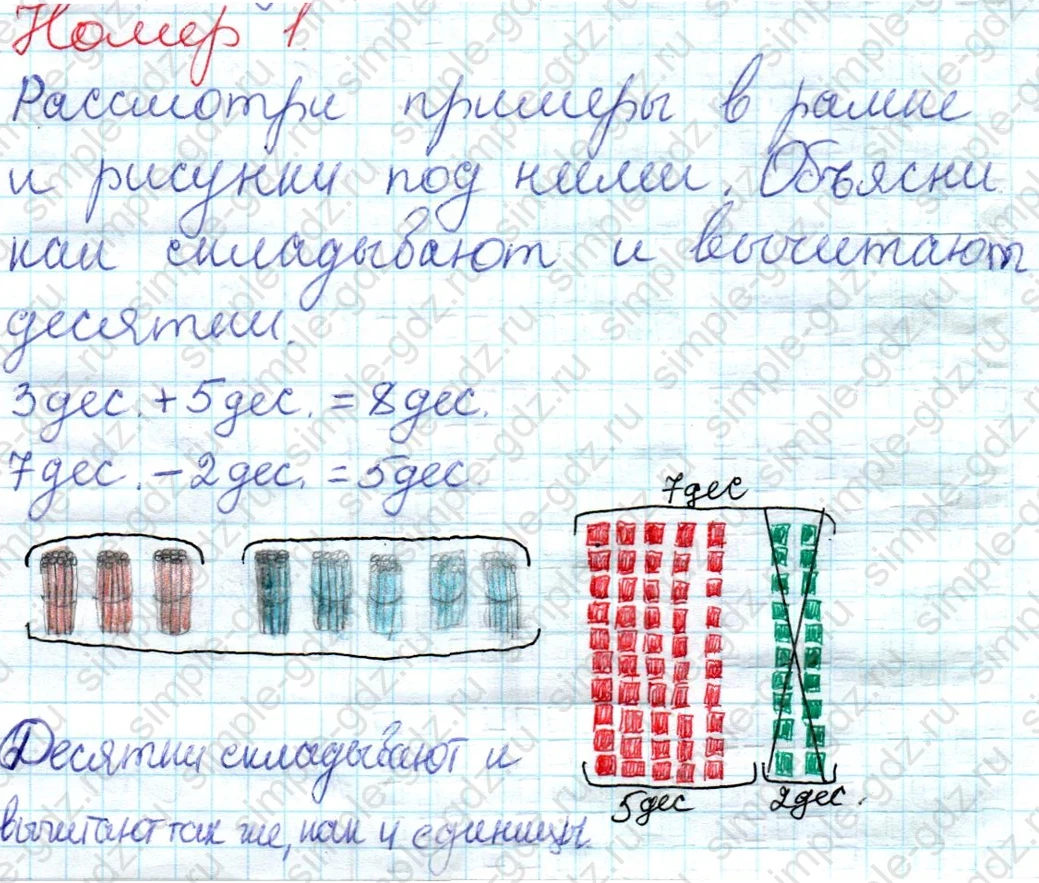 Номер 1
Рассмотри примеры в рамке
и рисунки под ними. Объясни
как складывают и вычитают
десятки.
3дес. + 5дес. = 8дес.
7дес. - 2дес. = 5дес.
7дес
5дес
2дес.
Десятки складывают и
вычитают так же, как и единицы.
simple-gdz.ru